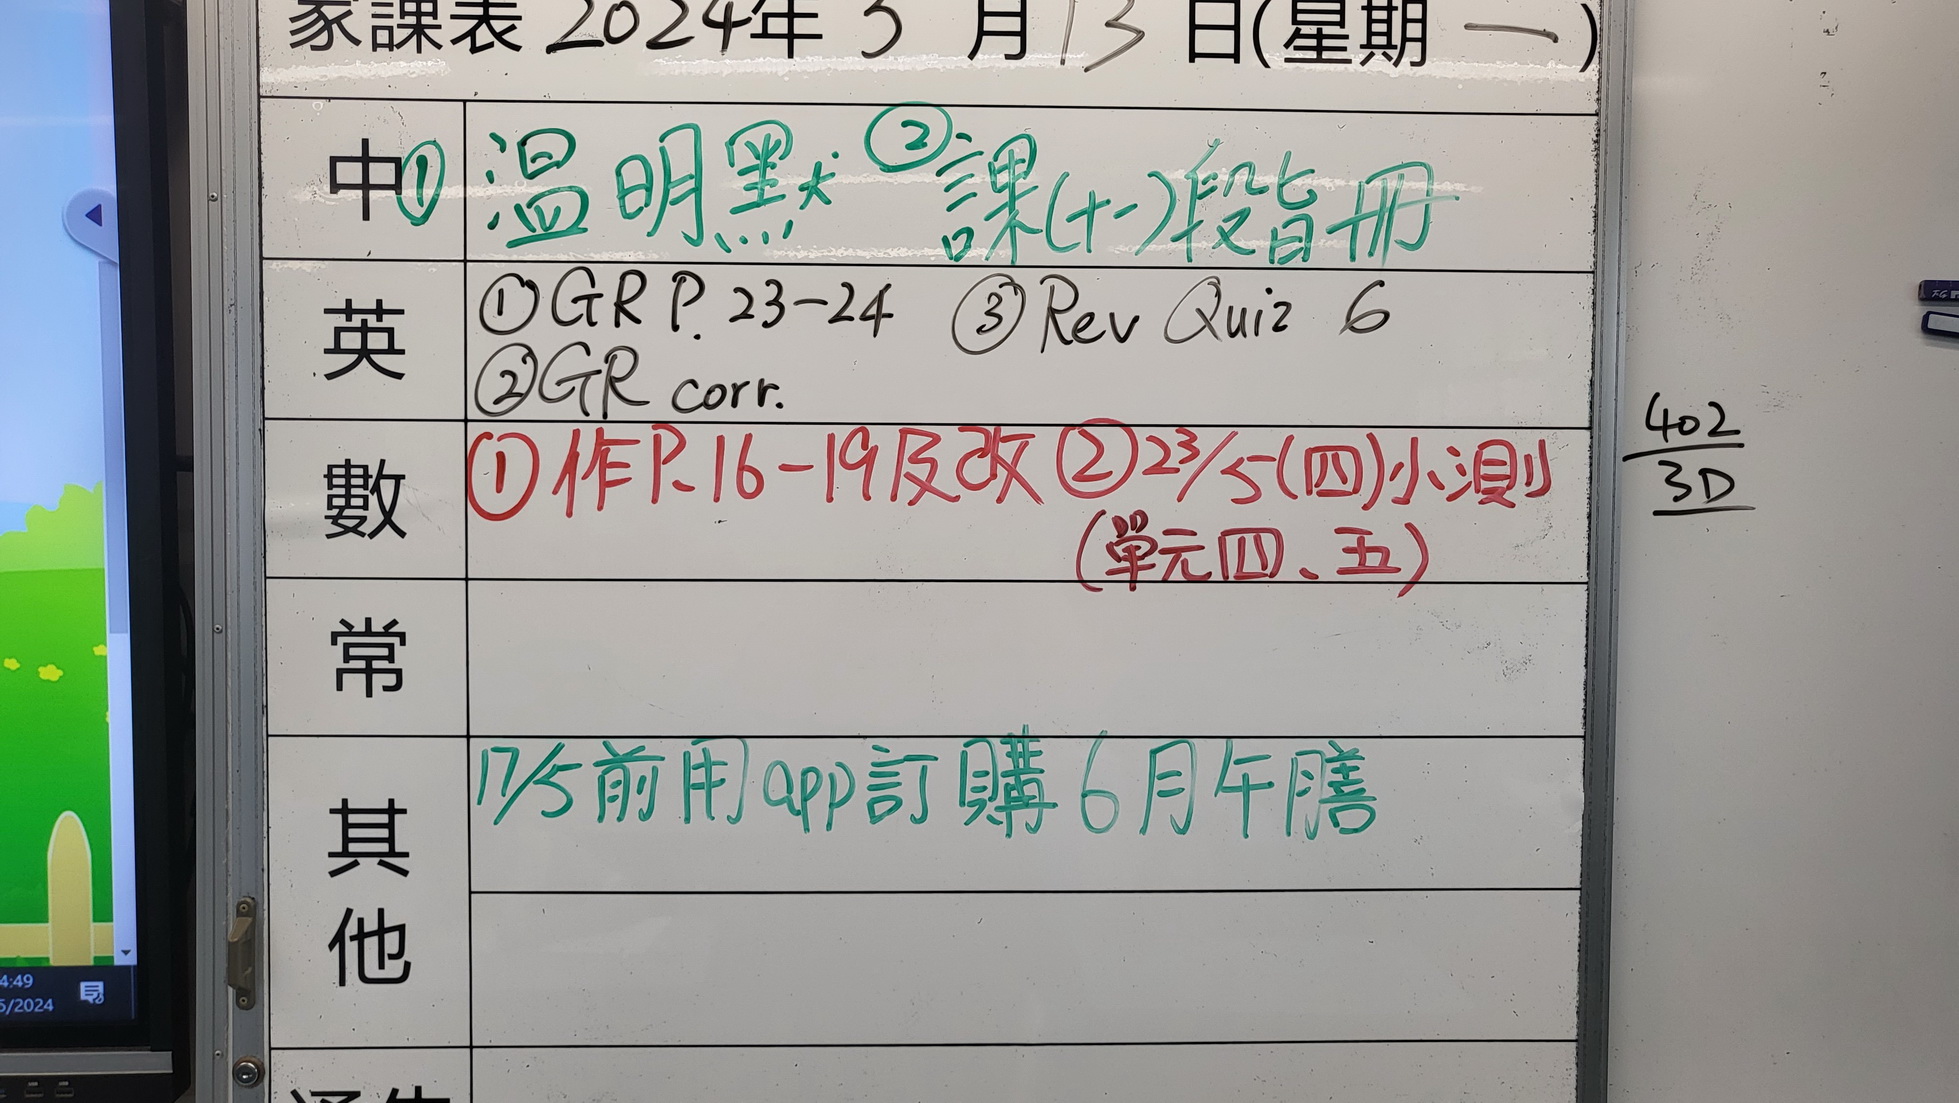 家課表 2024年 5 月 13 日(星期 一 )
中 ① 温明默 ② 課(十一)段旨冊
英 ① GR P. 23-24 ③ Rev Quiz 6
② GR corr.
數 ① 作P.16-19及改 ② 23/5(四)小測
(單元四、五)
402
3D
常
其他 17/5前用app訂購6月午膳
4:49
5/2024